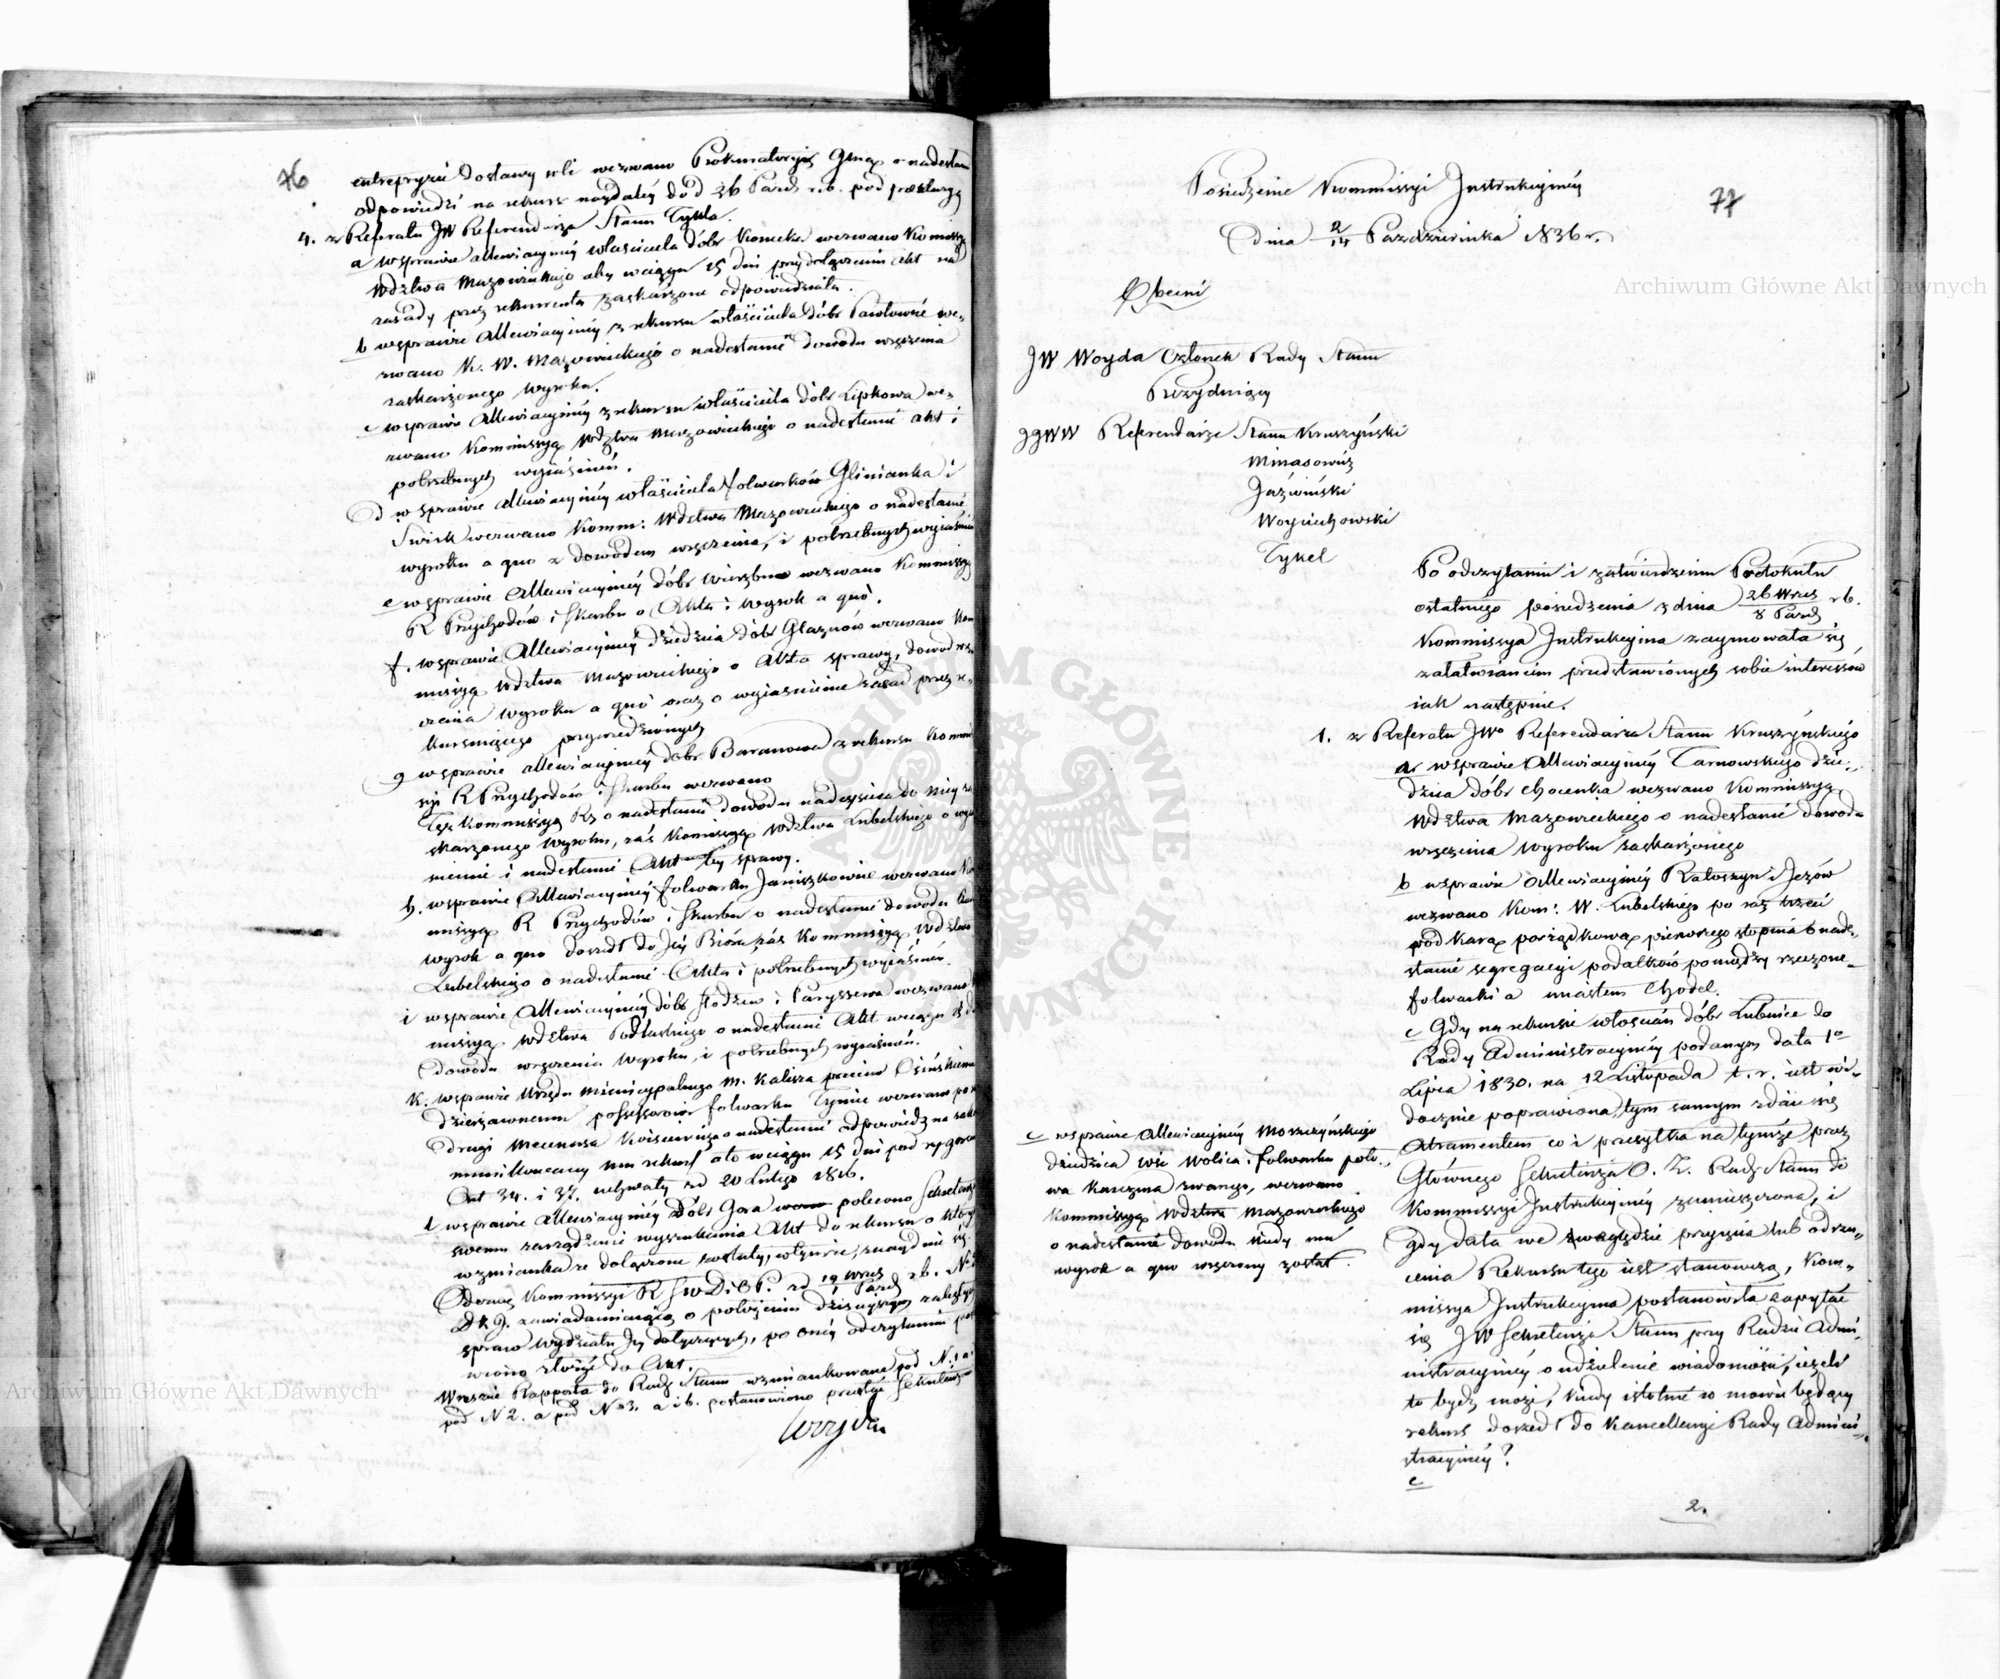 76
entrepryzie dostawy soli wezwano Prokuratoryą Gną o nadesłanie
odpowiedzi na rekurs najdaléj do d 26 Paźd. r.b. pod prekluzyą
4. z Referatu JW Referendarza Stanu Tykla.
a w sprawie allewiacyjnéj właściciela dóbr wezwano Kommissyą
Wdztwa Mazowieckiego aby w ciągu 15 dni przy dołączeniu akt na
zasady przez rekurenta zaskarżone odpowiedziała.
b w sprawie Allewiacyjnéj z rekursu właściciela dóbr Pawłowic we-
zwano K. W. Mazowieckiego o nadesłanie dowodu wręczenia
zaskarżonego wyroku.
c w sprawie Allewiacyjnéj z rekursu właściciela dóbr Lipkowa we-
zwano Kommissyą Wdztwa Mazowieckiego o nadesłanie akt i
potrzebnych wyjaśnień.
d w sprawie allewiacyjnéj właściciela folwarków Glinianka i
Świsk wezwano Komm: Wdztwa Mazowieckiego o nadesłanie
wyroku a quo z dowodem wręczenia, i potrzebnych wyjaśnień
e w sprawie Allewiacyjnéj dóbr Wierzbno wezwano Kommissyą
R Przychodów i Skarbu o Akta i wyrok a quo.
f. w sprawie Allewiacyjnéj dziedzica dóbr Głaznów wezwano Kom
missyą Wdztwa Mazowieckiego o Akta sprawy, dowód wrę
czenia wyroku a quo oraz o wyjaśnienie zasad przez re-
kursującego przywiedzionych
g w sprawie allewiacyjnéj dóbr Baranowa z rekursu Kommis
syi R Przychodów i Skarbu wezwano
Tęż Kommissyą Rz o nadesłanie dowodu nadejścia do niéj za
skarżonego wyroku, zaś Kommissyą Wdztwa Lubelskiego o wyja
śnienie i nadesłanie Akt téj sprawy.
h. w sprawie Allewiacyjnéj folwarku Janiszkowie wezwano Ko
missyą R Przychodów i Skarbu o nadesłanie dowodu kiedy
wyrok a quo doszedł do Jéj Biura, zaś Kommissyą Wdztwa
Lubelskiego o nadesłanie Akta i potrzebnych wyjaśnień.
i w sprawie Allewiacyjnéj dóbr Stodzew i Paryssewa wezwano
missyą Wdztwa Podlaskiego o nadesłanie Akt w ciągu 15 d
dowodu wręczenia wyroku, i potrzebnych wyjaśnień.
k. w sprawie Urzędu Municypalnego M. Kalisza przeciw Osińskiemu
dzierżawnemu possessorowi folwarku Tyniec wezwano po raz
drugi Mecenasa o nadesłanie odpowiedzi na zako
munikowany mu rekurs a to w ciągu 15 dni pod rygorem
Art 34. i 37. uchwały z d 20 Lutego 1816.
l w sprawie Allewiacyjnéj dóbr Gora polecono Sekretarzowi
swemu zarządzenie wyszukania Akt do rekursu o których
wzmianka że dołączone zostały, w którym znajduje się.
Odezwę Kommissyi R S W D i O P. z d 19 Wrześ / 1 Paźd rb. No
zawiadamiającą o położeniu dzisiejszym zaległych
spraw wydziału Jéj dotyczących, po onéj odczytaniu posta
wiono złożyć do Akt.
Wreszcie Rapporta do Rady Stanu wzmiankowane pod N. 1 a
pod N 2. a pod No 3. a i b. postanowiono przesłać Sekretarzo
Woyda
77
Posiedzenie Kommissyi Instrukcyjnéj
Dnia 2/14 Października 1836 r.
Obecni
JW Woyda Członek Rady Stanu
Prezydujący
JJWW Referendarze Stanu Kruszyński
Minasowicz
Jaźwiński
Woyciechowski
Tykel
Po odczytaniu i zatwierdzeniu Protokułu
ostatniego posiedzenia z dnia 26 Wrześ / 8 Paźd rb.
Kommissya Instrukcyjna zajmowała się
załatwianiem przedstawionych sobie interessów
jak następnie.
1. z Referatu JWo Referendarza Stanu Kruszyńskiego
a w sprawie Allewiacyjnéj Tarnowskiego dzie-
dzica dóbr Chocenka wezwano Kommissyą
Wdztwa Mazowieckiego o nadesłanie dowodu
wręczenia wyroku zaskarżonego
b w sprawie Allewiacyjnéj Ratoszyn i Jeżów
wezwano Kom: W. Lubelskiego po raz trzeci
pod karą porządkową pierwszego stopnia o nade-
słanie segregacyi podatków pomiędzy rzeczone-
folwarki a miastem Chodel.
c Gdy na rekursie włościan dóbr Lubnice do
Rady Administracyjnéj podanym data 1o
Lipca 1830. na 12 Listopada t. r. jest wi-
docznie poprawiona, tym samym zdaie się
Atramentem co i przesyłka na tymże przez
Głównego Sekretarza O. Z. Rady Stanu do
Kommissyi Instrukcyjnéj zamieszczona, i
gdy data we względzie przyjęcia lub odrzu-
cenia Rekursu tego jest stanowczą, Kom-
missya Instrukcyjna postanowiła zapytać
się JW Sekretarza Stanu przy Radzie Admi-
nistracyjnéj o udzielenie wiadomości, jeżeli
to być może, kiedy istotnie w mowie będący
rekurs doszedł do Kancellaryi Rady Admini-
stracyjnéj?
c
c w sprawie Allewiacyjnéj Moszczyńskiego
dziedzica wsi Wolica i folwarku polo-
wa Karczma zwanego, wezwano
Kommissyą Wdztwa Mazowieckiego
o nadesłanie dowodu kiedy mu
wyrok a quo wręczony został.
2.
Archiwum Główne Akt Dawnych
Archiwum Główne Akt Dawnych
ARCHIWUM GŁÓWNE AKT DAWNYCH